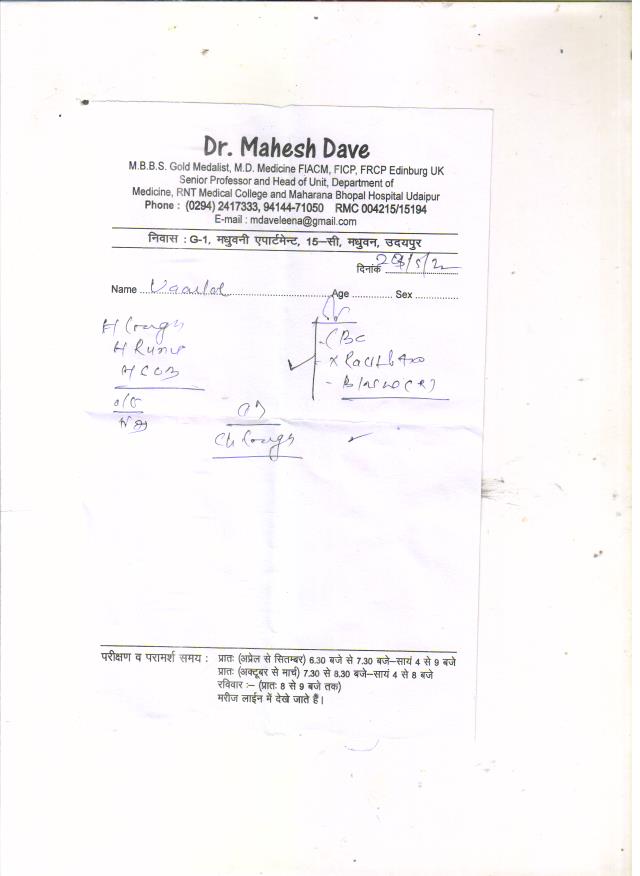 Dr. Mahesh Dave
M.B.B.S. Gold Medalist, M.D. Medicine FIACM, FICP, FRCP Edinburg UK
Senior Professor and Head of Unit, Department of
Medicine, RNT Medical College and Maharana Bhopal Hospital Udaipur
Phone : (0294) 2417333, 94144-71050 RMC 004215/15194
E-mail : mdaveleena@gmail.com
निवास : G-1, मधुवनी एपार्टमेन्ट, 15–सी, मधुवन, उदयपुर
दिनांक
Name Age Sex
H Cough
- CBC
H COB
O/E
Ch Cough
परीक्षण व परामर्श समय : प्रातः (अप्रेल से सितम्बर) 6.30 बजे से 7.30 बजे–सायं 4 से 9 बजे
प्रातः (अक्टूबर से मार्च) 7.30 से 8.30 बजे–सायं 4 से 8 बजे
रविवार :– (प्रातः 8 से 9 बजे तक)
मरीज लाईन में देखे जाते हैं।